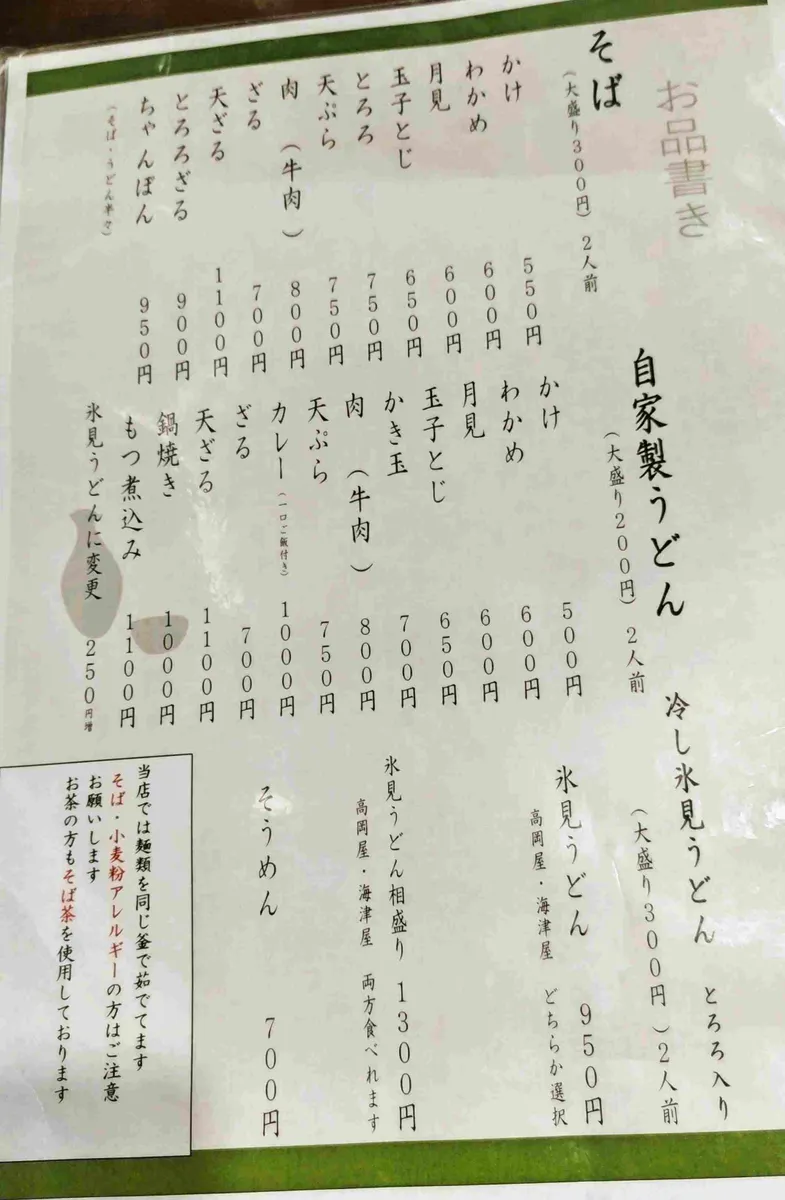 お品書き
そば
(大盛り300円)2人前
かけ 550円
わかめ 600円
月見 600円
玉子とじ 650円
とろろ 750円
天ぷら 750円
肉(牛肉) 800円
ざる 700円
天ざる 1100円
とろろざる 900円
ちゃんぽん 950円
(そば・うどん半々)
自家製うどん
(大盛り200円)2人前
かけ 500円
わかめ 600円
月見 600円
玉子とじ 650円
かき玉 700円
肉(牛肉) 800円
天ぷら 750円
カレー(一口ご飯付き) 1000円
ざる 700円
天ざる 1100円
鍋焼き 1000円
もつ煮込み 1100円
氷見うどんに変更 250円増
冷し氷見うどん とろろ入り
(大盛り300円)2人前
氷見うどん 950円
高岡屋・海津屋 どちらか選択
氷見うどん相盛り 1300円
高岡屋・海津屋 両方食べれます
そうめん 700円
当店では麺類を同じ釜で茹でてます
そば・小麦粉アレルギーの方はご注意
お願いします
お茶の方もそば茶を使用しております